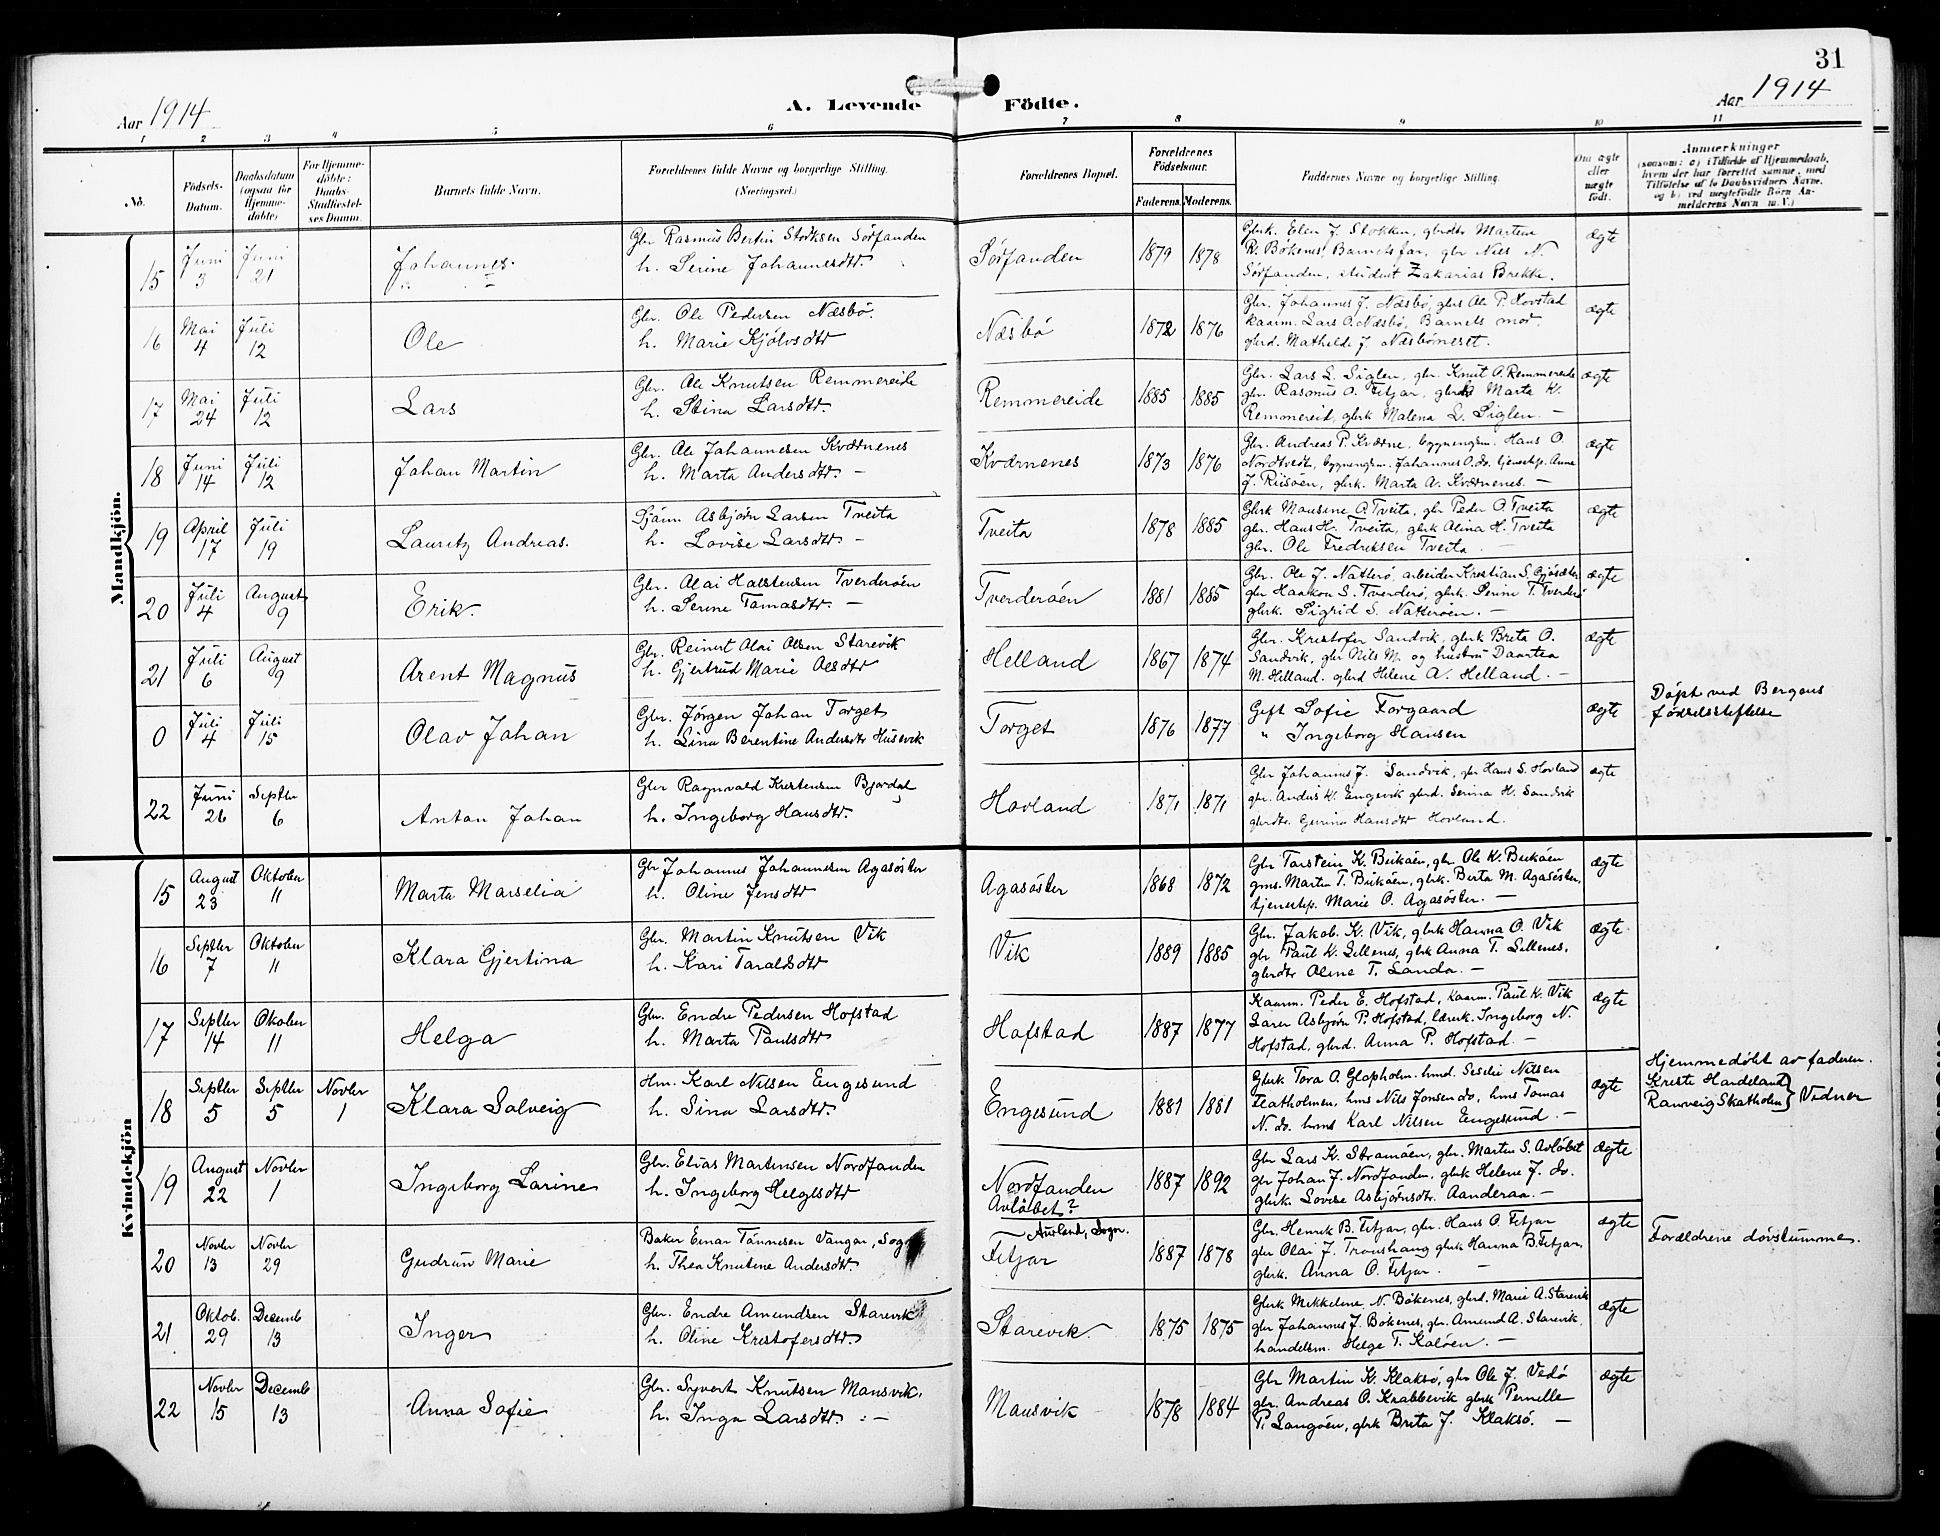 31
Aar 1914
A. Levende Födte.
Aar 1914
1 2 3 4 5 6 7 8 9 10 11
No.
Födsels-
Datum.
Daabsdatum
(ogsaa for
Hjemme-
döbte)
For Hjemme-
döbte:
Daabs-
Stadfæstel-
ses Datum.
Barnets fulde Navn.
Forældrenes fulde Navne og borgerlige Stilling.
(Næringsvei.)
Forældrenes Bopæl.
Forældrenes
Födselsaar.
Faderens. Moderens.
Faddernes Navne og borgerlige Stilling.
Om ægte
eller
uægte
født.
Anmærkninger
(saasom: a) i Tilfælde af Hjemmedaab,
hvem der har forrettet samme, med
Tilföielse af to Daabsvidners Navne,
og b) ved uægtefödte Börn An-
melderens Navn m. V.)
Mandkjön.
15
Juni
3
Juni
21
Johannes.
Gbr Rasmus Bertin Storksen Sörfanden
h. Serine Johannesdtr.
Sörfanden
1879 1878
Gbrk. Elen J. Stokken, gbrdtr Martina
R. Bökenes, Barnets far, gbr Nils N.
Sörfanden, student Zakarias Brekke.
ægte
16
Mai
4
Juli
12
Ole
Gbr. Ole Pedersen Næsbö.
h. Marie Kjölvsdtr
Næsbö
1872 1876
Gbr. Johannes J. Næsbö, gbrs Ole P. Hovstad
kaarm. Lars O. Næsbö, Barnets mor.
gbrd. Mathilde J. Næsbömeset.
ægte
17
Mai
24
Juli
12
Lars
Gbr. Ole Knutsen Remmereide
h. Stina Larsdtr.
Remmereide
1885 1885
Gbr. Lars L. Siglen, gbr. Knut O. Remmereide
gbr. Rasmus O. Fitjar, gbrd Marta K.
Remmereid, gbrk Malena L. Siglen. —
ægte
18
Juni
14
Juli
12
Johan Martin
Gbr. Ole Johannesen Kværnenes
h. Marta Andersdtr. —
Kværnenes
1873 1876
Gbr. Andreas P. Kværne, bygningsm. Hans O.
Nordtveit, bygningsm. Johannes O. do. tjenestep. Anne
J. Risöen, gbrk. Marta A. Kværnenes. —
ægte
19
April
17
Juli
19
Lauritz Andreas.
Sjöm. Asbjörn Larsen Tveita
h. Lovise Larsdtr. —
Tveita
1878 1885
Gbrk Mansine O. Tveita, gbr Peder O. Tveita
gbr. Hans H. Tveita, gbrk Alina H. Tveita
gbr. Ole Fredriksen Tveita. —
ægte
20
Juli
4
August
9
Erik.
Gbr. Olai Halstensen Tverderöen
h. Serine Tomasdtr. —
Tverderöen
1881 1885
Gbr. Ole J. Natterö, arbeider Kristian S. Gjösæter
gbr Haakon S. Tverderö, gbrk. Serine T. Tverderö
gbrk. Sigrid S. Natteröen. —
ægte
21
Juli
6
August
9
Arent Magnus
Gbr. Reinert Olai Olsen Starevik
h. Gjertrud Marie Olsdtr
Helland
1867 1874
Gbr. Kristofer Sandvik, gbrk Brita O.
Sandvik, gbr Nils M. og hustru Daartea
M. Helland. gbrd Helene A. Helland. —
ægte
0
Juli
4
Juli
15
Olav Johan
Gbr. Jörgen Johan Torget
h. Lina Berentine Andersdtr Husevik
Torget
1876 1877
Gift Sofie Forgaard
" Ingeborg Hansen
ægte
Döpt ved Bergens
födselsstiftelse
22
Juni
26
Septbr
6
Anton Johan
Gbr Ragnvald Kristensen Bjordal
h. Ingeborg Hansdtr.
Hovland
1871 1871
Gbr Johannes J. Sandvik, gbr Hans S. Hovland
gbr. Anders K. Engevik gbrd. Serina H. Sandvik
gbrdtr. Gurina Hansdtr Hovland.
ægte
Kvindekjön
15
August
23
Oktober
11
Marta Marselia
Gbr Johannes Johannesen Agasöster
h. Oline Jensdtr
Agasöster
1868 1872
Gbr Torstein K. Beiköen, gbr. Ole K. Beiköen
gms. Marta T. Beiköen, gbrk. Berta M. Agasöster,
tjenestep. Marie O. Agasöster. —
ægte
16
Septbr
7
Oktober
11
Klara Gjertina
Gbr. Martin Knutsen Vik
h. Kari Taraldsdtr
Vik
1889 1885
Gbr. Jakob K. Vik, gbrk Hanna O. Vik
gbr Paul K. Lillenes, gbrk Anna T. Lillenes,
gbrdtr Oline T. Landa. —
ægte
17
Septber
14
Oktober
11
Helga
Gbr. Endre Pedersen Hofstad
h. Marta Paulsdtr
Hofstad
1887 1877
Kaarm. Peder E. Hofstad, kaarm. Paul K. Vik
Lærer Asbjörn P. Hofstad, lærerk. Ingeborg N.
Hofstad, gbrd. Anna P. Hofstad. —
ægte
18
Septber
5
Septber
5
Novber
1
Klara Solveig
Hm. Karl Nilsen Engesund
h. Sina Larsdtr.
Engesund
1881 1881
Gbrk Tora O. Glopholm. hmd. Sesilie Nilsen
Flatholmen, hms Nils Jonsen do, hms Tomas
N. do. hms Karl Nilsen Engesund. —
ægte
Hjemmedöbt av faderen.
Kreste Handeland
Ranveig Skatholm } Vidner
19
August
22
Novber
1
Ingeborg Larine
Gbr. Elias Martinsen Nordfanden
h. Ingeborg Helgesdtr
Nordfanden
Avlöbet?
1887 1892
Gbr Lars K. Strömöen, gbr. Martin S. Avlöbet
gbr Johan J. Nordfanden, gbrk Helene J. do.
gbrk. Lovise Asbjörnsdtr. Aanderaa. —
ægte
20
Novber
13
Novber
29
Gudrun Marie
Baker Einar Tönnesen Vangen, Sogn
h. Thea Knutine Andersdtr.
Aurland, Sogn.
Fitjar
1887 1878
Gbr. Henrik B. Fitjar, gbr. Hans O. Fitjar
gbr Olai J. Trovshaug gbrk Hanna B. Fitjar,
gbrk. Anna O. Fitjar. —
ægte
Forældrene dövstumme.
21
Oktob.
29
Decemb
13
Inger
Gbr. Endre Amundsen Starevik
h. Oline Kristofersdtr.
Starevik.
1875 1875
Gbrk Mikkeline N. Bökenes, gbrd. Marie A. Starevik
gbr Johannes J. Bökenes, gbr. Amund A. Starevik,
handelsm. Helge T. Kalöen. —
ægte
22
Novber
15
Decemb
13
Anna Sofie
Gbr. Syvert Knutsen Mansvik,
h. Inga Larsdtr. : —
Mansvik
1878 1884
Gbr Martin K. Klaksö, gbr Ole J. Vedö
gbr. Andreas O. Krabbevik gbrk Pernille
P. Langöen, gbrk Brita J. Klaksö. —
ægte